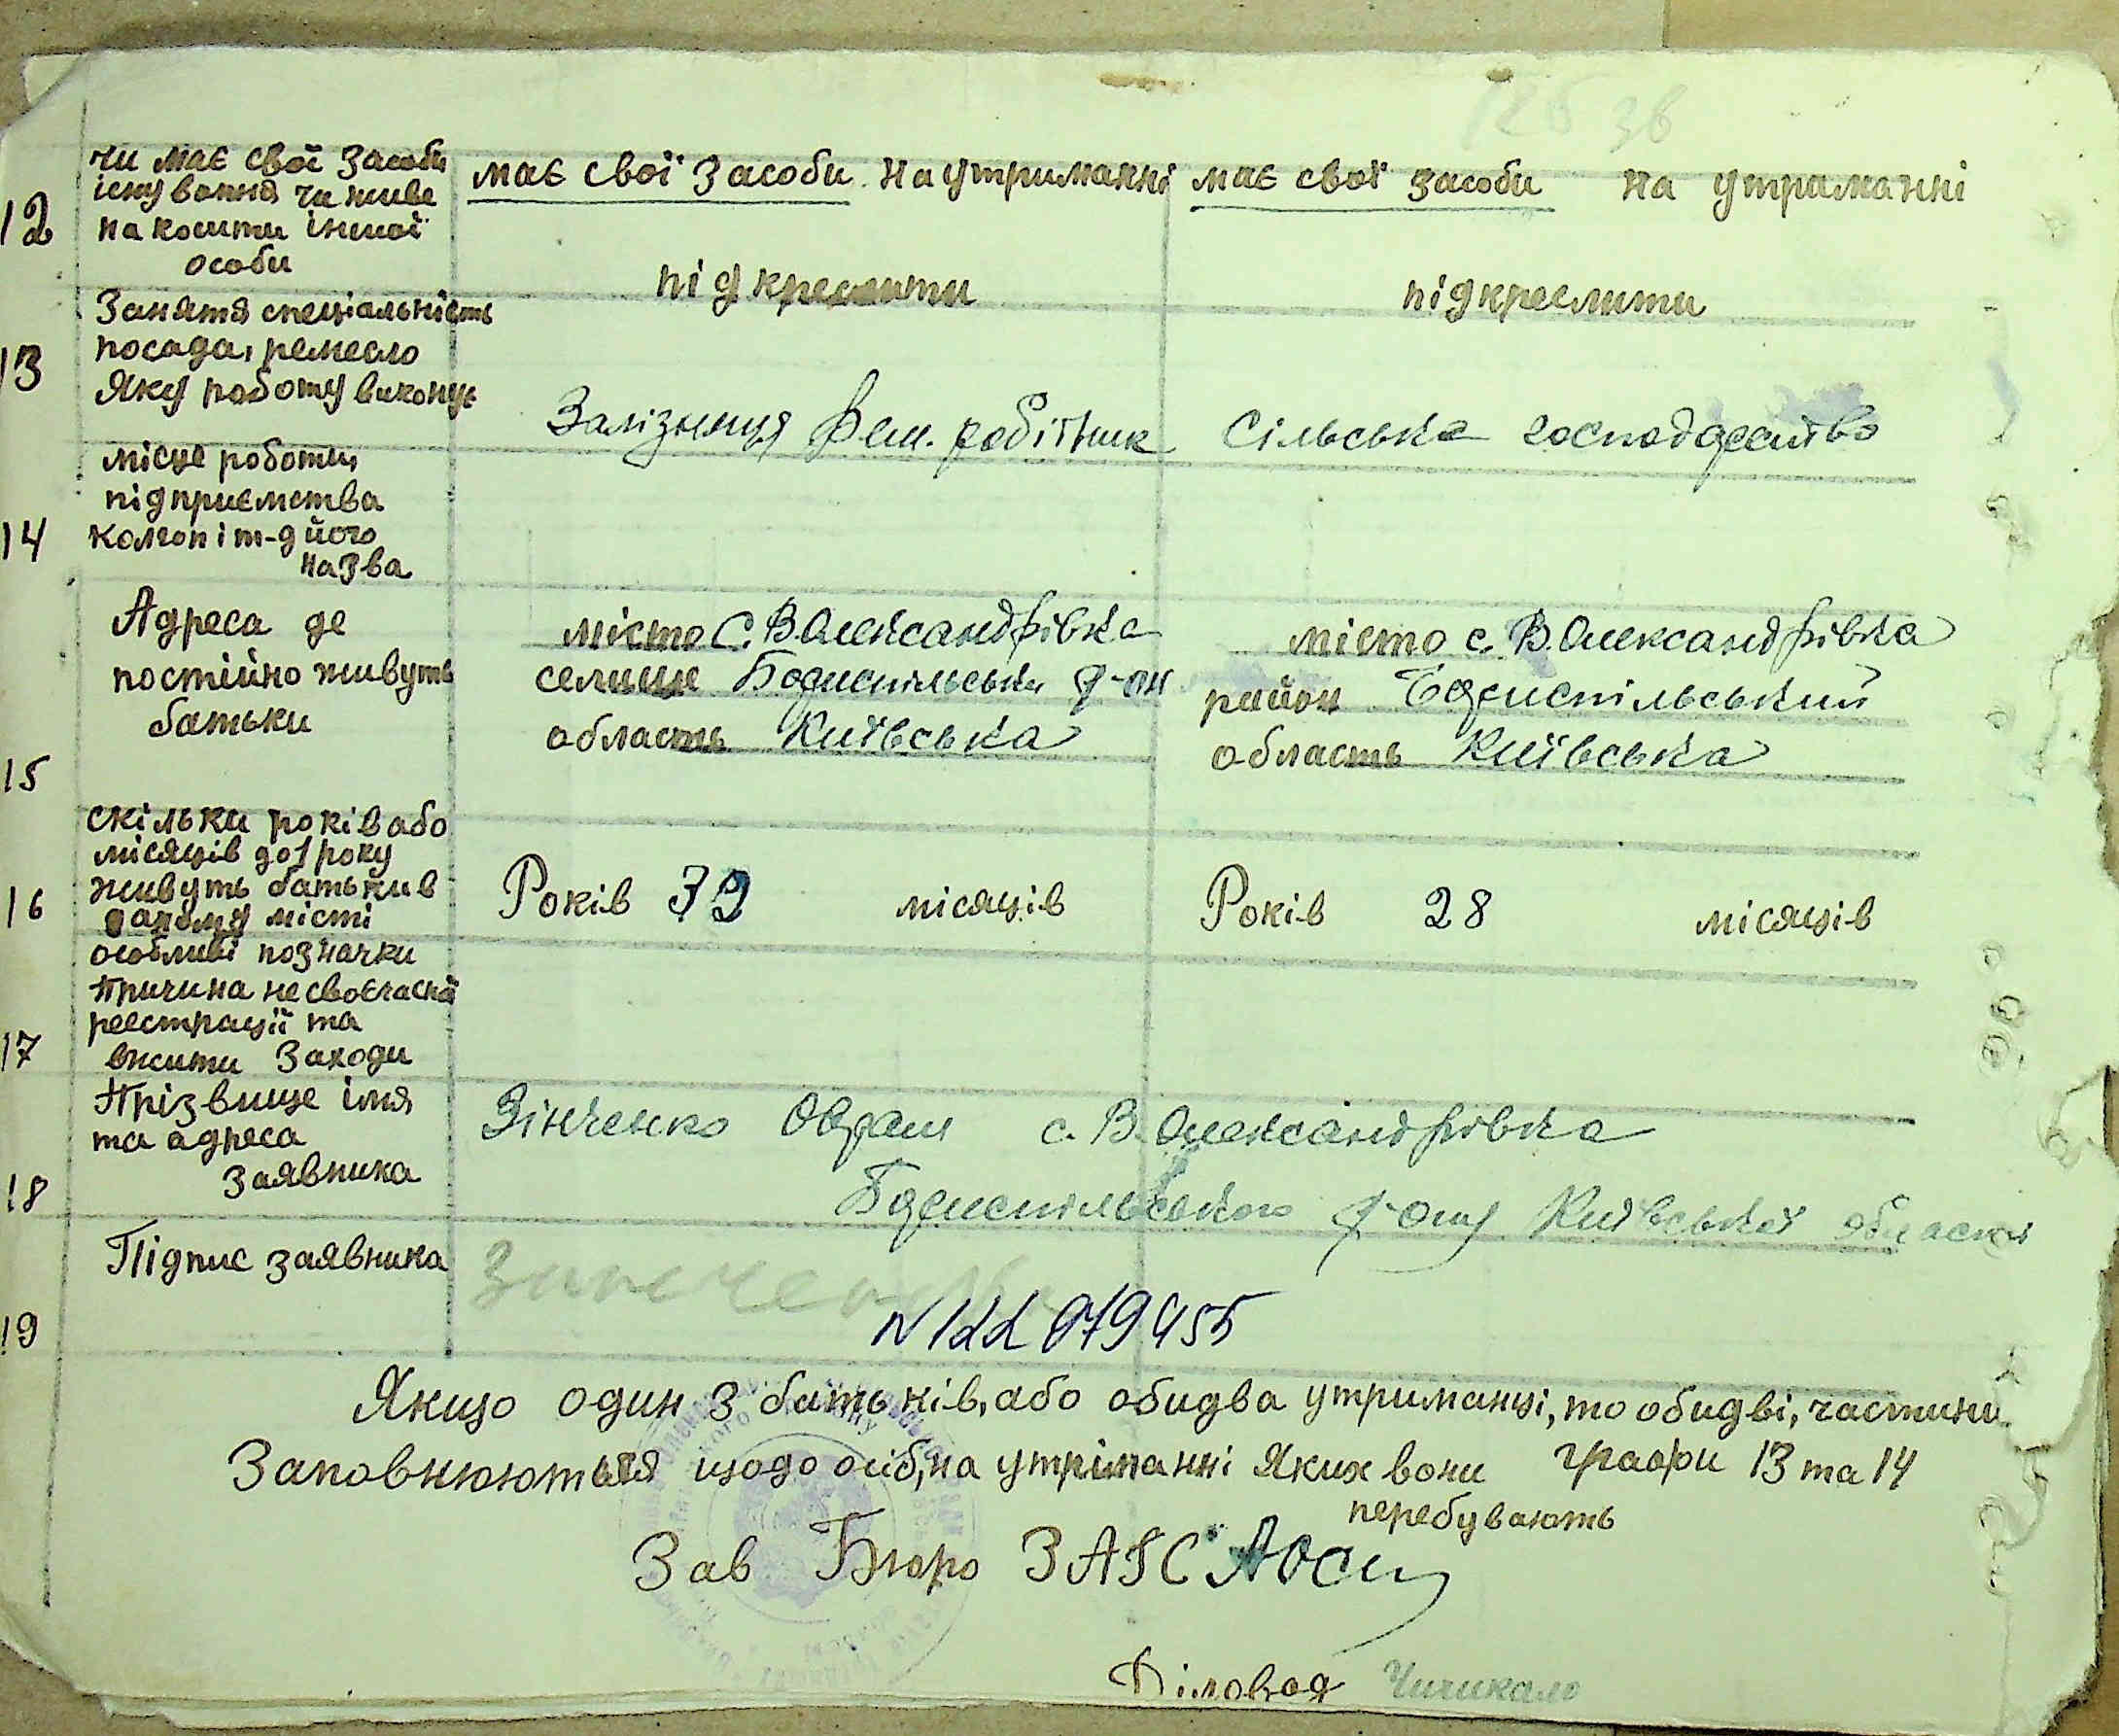 12 чи має свої засоби
існування чи живе
на кошти іншої
особи
має свої засоби на утриманні має свої засоби на утриманні
підкреслити підкреслити
13 Заняття спеціальність
посада, ремесло
Яку роботу виконує
Залізниця робітник Сільське господарство
14 місце роботи,
підприємства
його
назва
15 Адреса де
постійно живуть
батьки
місто с. В.Олександрівка
селище Бориспільський р-он
область Київська
місто с. В.Олександрівка
район Бориспільський
область Київська
16 скільки років або
місяців до 1 року
живуть батьки в
даному місті
Років 32 місяців Років 28 місяців
17 особливі позначки
Причина несвоєчасної
реєстрації та
вжити Заходи
18 Прізвище імя
та адреса
Заявника
Зінченко с. В.Олександрівка
Бориспільського р-ону Київської області
19 Підпис заявника
Якщо один з батьків, або обидва утриманці, то обидві, частини
Заповнюються щодо осіб, на утриманні Яких вони графи 13 та 14
перебувають
Зав Бюро ЗАГС
Діловод Чичикало